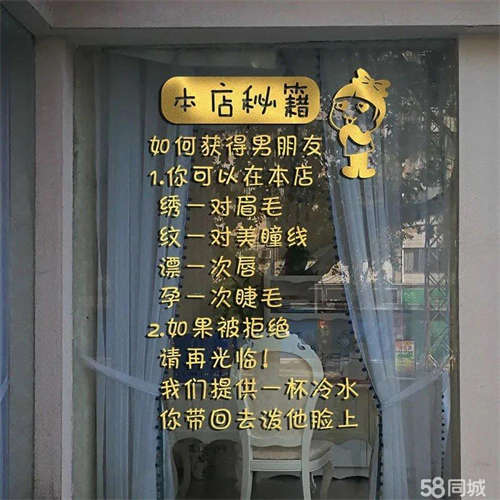 本店秘籍
如何获得男朋友
1.你可以在本店
绣一对眉毛
纹一对美瞳线
漂一次唇
孕一次睫毛
2.如果被拒绝
请再光临!
我们提供一杯冷水
你带回去泼他脸上
58同城